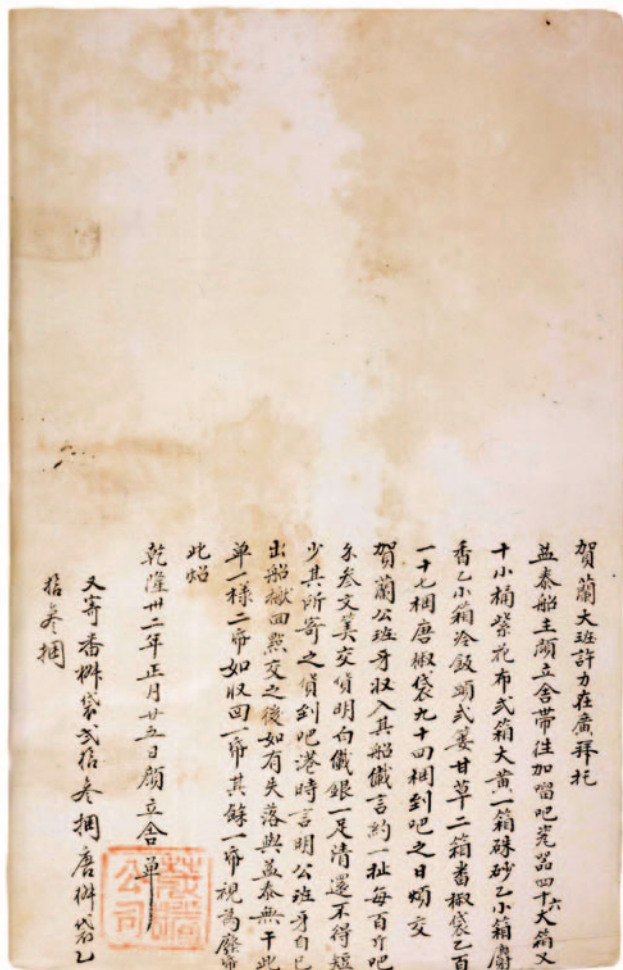 賀蘭大班許力在廣拜托
益泰船主顏立舍帶往加留吧瓷器四十六大箱又
十小桶紫花布弍箱大黄一箱硃砂乙小箱麝
香乙小箱冷飯頭弍簍甘草二箱番椒袋乙百
一十七梱唐椒袋九十四梱到吧之日煩交
賀蘭公班牙収入其船儎言約一扯每百斤吧
艮叁文算交貨明白儎銀一足清還不得短
少其所寄之貨到吧港時言明公班牙自已
出船撥回點交之後如有失落與益泰無干此
单一樣二帋如収回一帋其餘一帋視為廢帋
此炤
乾隆卅二年正月廿五日顏立舍单
又寄番椒袋弍拾叁梱唐椒袋乙
拾叁梱
公司